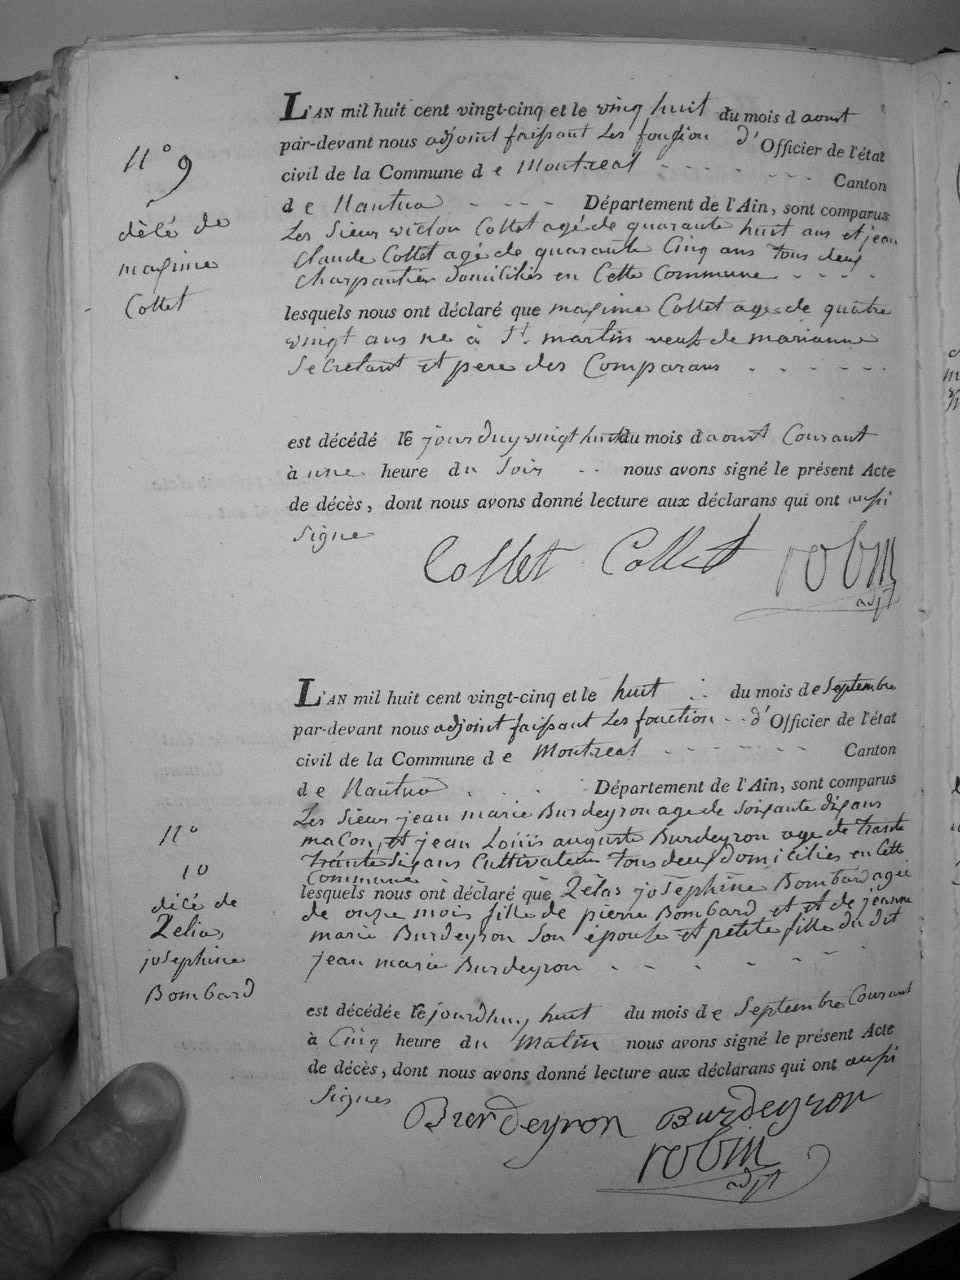 N° 9
décé de
maxime
Collet
L'AN mil huit cent vingt-cinq et le vingt huit du mois d aoust
par-devant nous adjoint faissant Les fonction d'Officier de l'état
civil de la Commune de Montreal - - - - - - Canton
de Nantua - - - - Département de l'Ain, sont comparus
Les Sieurs victor Collet agé de quarante huit ans et jean
Claude Collet agé de quarante Cinq ans tous deux
Charpantier domiciliés en Cette Commune - - - -
lesquels nous ont déclaré que maxime Collet age de quatre
vingt ans ne à St. martin veuf de marianne
Secretant et pere des Comparans - - - - - -
est décédé le jourduy vingt huit du mois d aoust Courant
à une heure du Soir - - nous avons signé le présent Acte
de décès, dont nous avons donné lecture aux déclarans qui ont aussi
Signe
Collet Collet robin
adjt
N°
10
décé de
Zelias
josephine
Bombard
L'AN mil huit cent vingt-cinq et le huit du mois de Septembre
par-devant nous adjoint faissant Les fonction - - d'Officier de l'état
civil de la Commune de Montreal - - - - - - Canton
de Nantua - - - - Département de l'Ain, sont comparus
Les Sieurs jean marie Burdeyron age de soixante dix ans
macon, et jean Loüis auguste Burdeyron age de trante
trante Six ans Cultivateur tous deux domiciliés en Cette
Commune
lesquels nous ont déclaré que Zélas joséphine Bombard agée
de onze mois fille de pierre Bombard et et de jeanne
marie Burdeyron Son épouse et petite fille du dit
jean marie Burdeyron - - - - - -
est décédée le jourdhuy huit du mois de Septembre Courant
à Cinq heure du Matin nous avons signé le présent Acte
de décès, dont nous avons donné lecture aux déclarans qui ont aussi
Signes
Burdeyron Burdeyron
robin
adjt